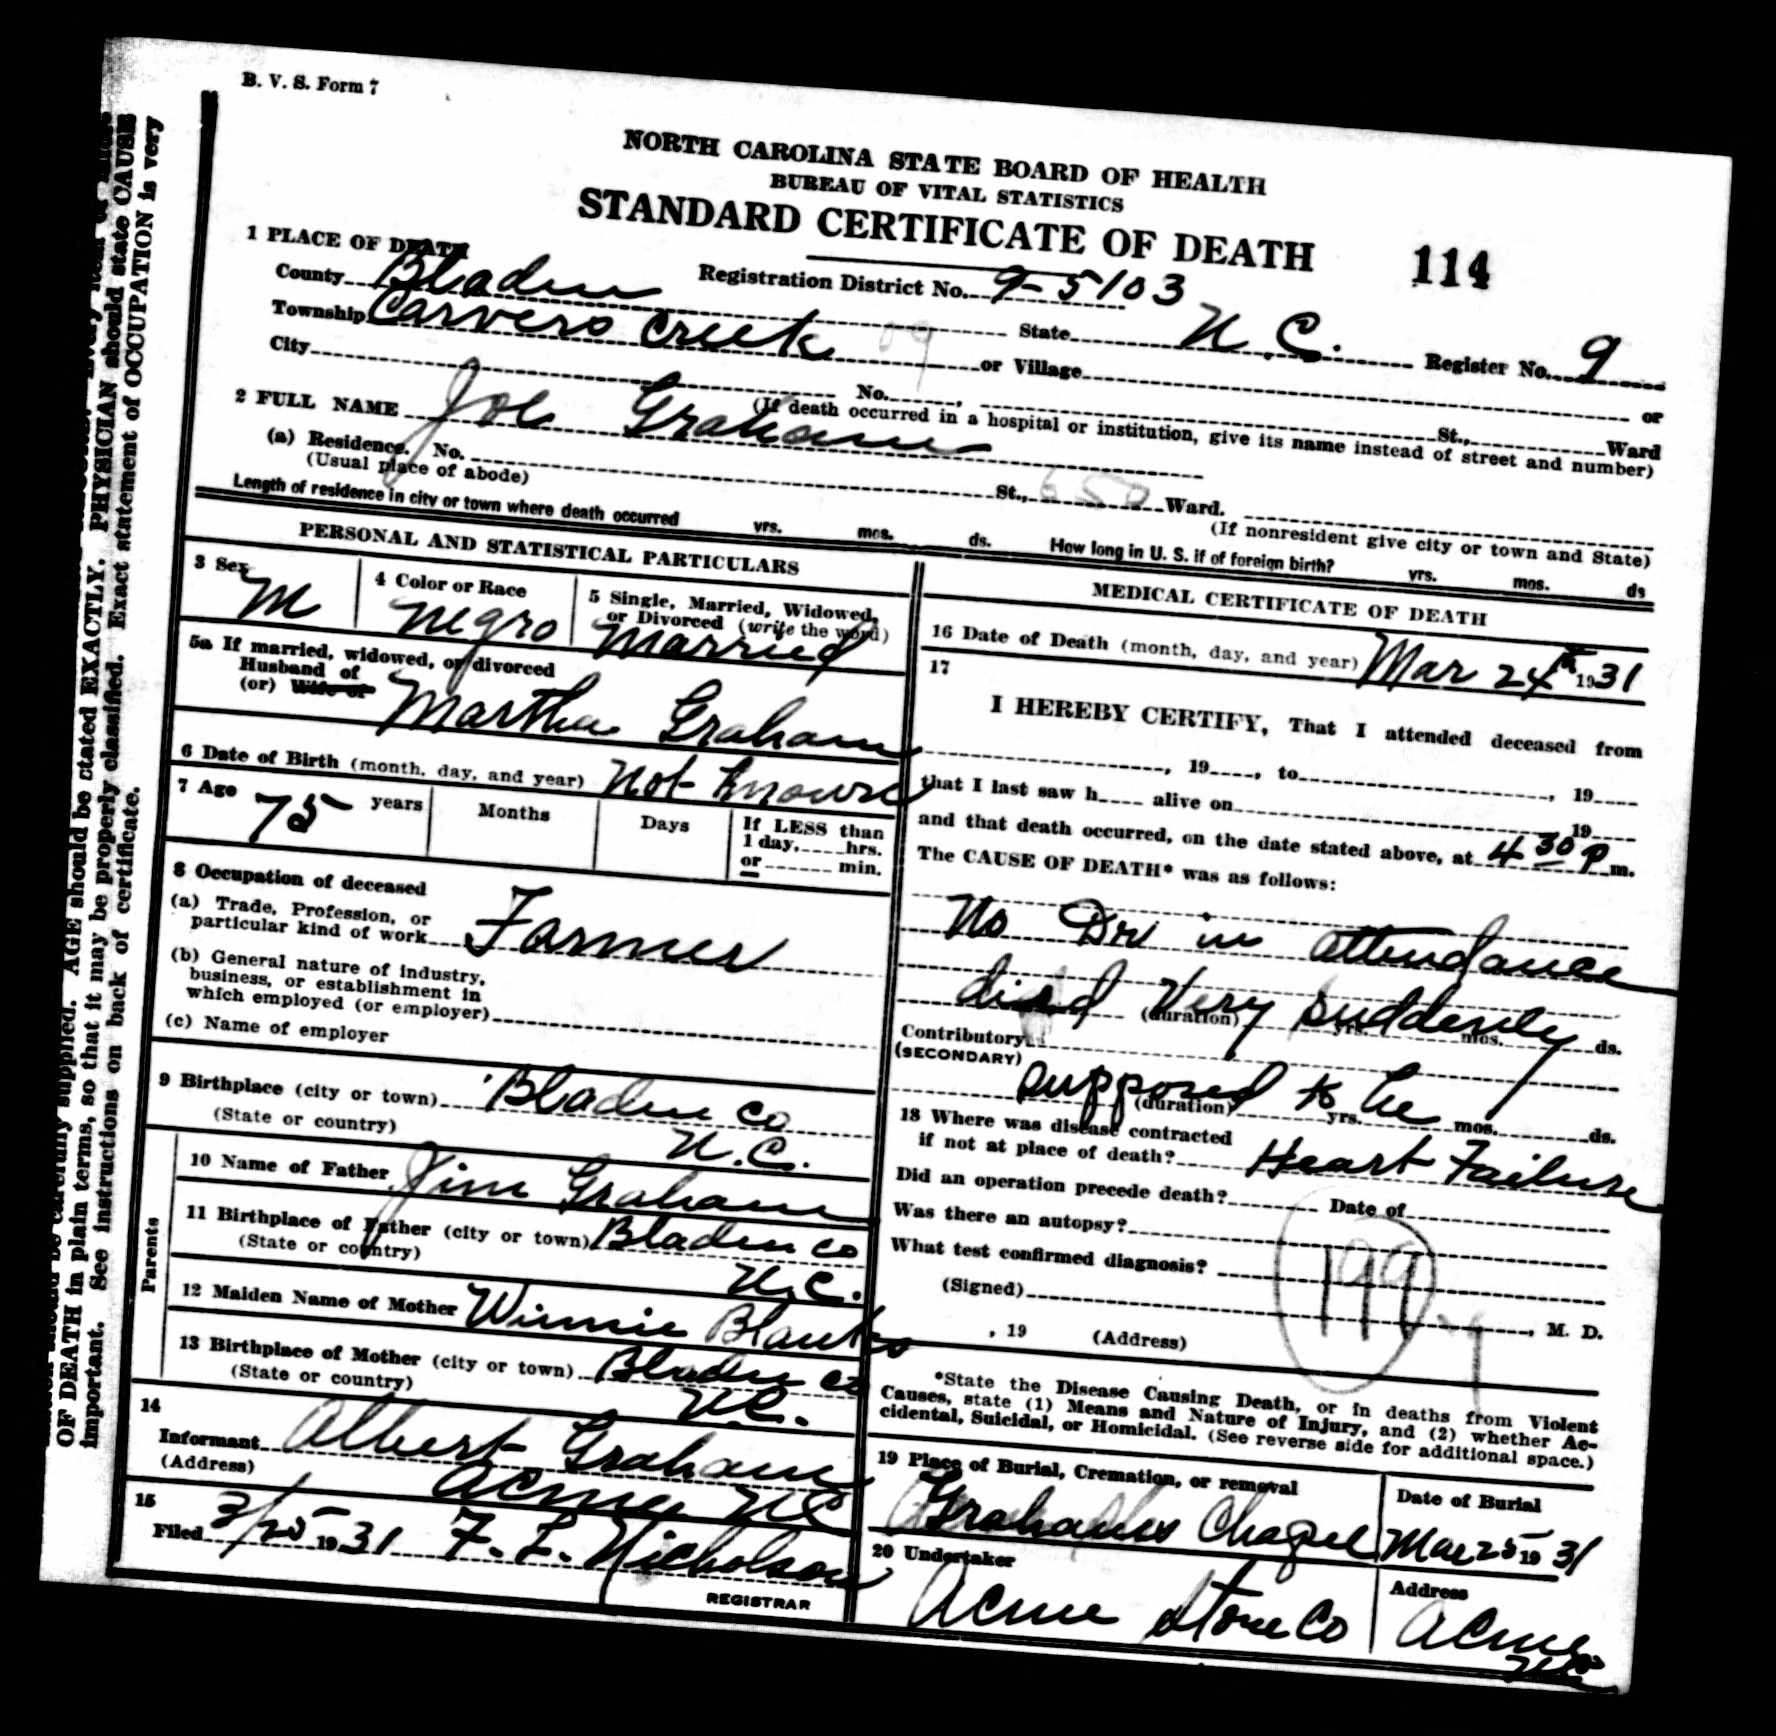 B. V. S. Form 7
NORTH CAROLINA STATE BOARD OF HEALTH
BUREAU OF VITAL STATISTICS
STANDARD CERTIFICATE OF DEATH
114
1 PLACE OF DEATH
County Bladen Registration District No. 9-5103
Township Carvers Creek 09 State N.C. Register No. 9
City or Village or
No. , St., Ward
(If death occurred in a hospital or institution, give its name instead of street and number)
2 FULL NAME Joe Graham
(a) Residence. No. St., 650 Ward.
(Usual place of abode) (If nonresident give city or town and State)
Length of residence in city or town where death occurred yrs. mos. ds. How long in U. S. if of foreign birth? yrs. mos. ds
PERSONAL AND STATISTICAL PARTICULARS
3 Sex M
4 Color or Race Negro
5 Single, Married, Widowed,
or Divorced (write the word)
Married
5a If married, widowed, or divorced
Husband of
(or) Wife of Martha Graham
6 Date of Birth (month, day, and year) Not Known
7 Age 75 years Months Days If LESS than
1 day, hrs.
or min.
8 Occupation of deceased
(a) Trade, Profession, or
particular kind of work Farmer
(b) General nature of industry,
business, or establishment in
which employed (or employer)
(c) Name of employer
9 Birthplace (city or town) Bladen Co
(State or country) N.C.
Parents
10 Name of Father Jim Graham
11 Birthplace of Father (city or town) Bladen Co
(State or country) N.C.
12 Maiden Name of Mother Winnie Blanks
13 Birthplace of Mother (city or town) Bladen Co
(State or country) N.C.
14
Informant Albert Graham
(Address) Acme NC
15
Filed 3/25 1931 F. L. Nicholson
REGISTRAR
MEDICAL CERTIFICATE OF DEATH
16 Date of Death (month, day, and year) Mar 24th 1931
17
I HEREBY CERTIFY, That I attended deceased from
, 19 , to , 19
that I last saw h alive on 19
and that death occurred, on the date stated above, at 4 30 P m.
The CAUSE OF DEATH* was as follows:
No Dr in attendance
died Very suddenly
(duration) yrs. mos. ds.
Contributory
(SECONDARY)
supposed to be
(duration) yrs. mos. ds.
18 Where was disease contracted
if not at place of death? Heart Failure
Did an operation precede death? Date of
Was there an autopsy?
What test confirmed diagnosis?
199
(Signed) , M. D.
, 19 (Address)
*State the Disease Causing Death, or in deaths from Violent
Causes, state (1) Means and Nature of Injury, and (2) whether Ac-
cidental, Suicidal, or Homicidal. (See reverse side for additional space.)
19 Place of Burial, Cremation, or removal
Grahams Chapel
Date of Burial
Mar 25 1931
20 Undertaker
Acme Store Co
Address
Acme
NC
should be carefully supplied. AGE should be stated EXACTLY. PHYSICIAN should state CAUSE
OF DEATH in plain terms, so that it may be properly classified. Exact statement of OCCUPATION is very
important. See instructions on back of certificate.